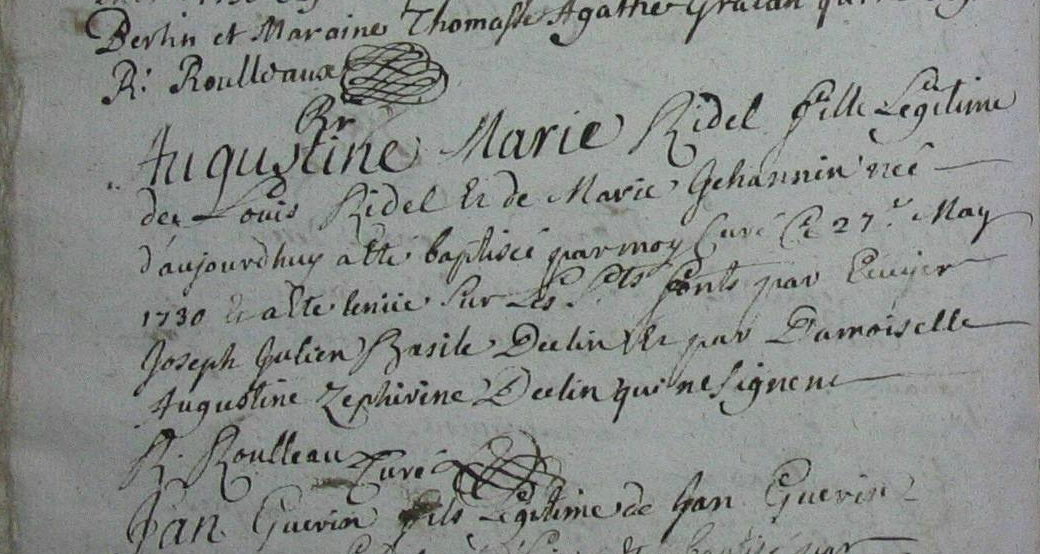 Berlin et Maraine Thomasse Agathe
R: Roulleaux
Br
Augustine Marie Ridel fille Legitime
de Louis Ridel Et de Marie Gehannin neé
d'aujourdhuy a ete baptiseé par moy Curé Ce 27e May
1730 et a ete teniie Sur Les Sts fonts par Ecuyer
Joseph Julien Basile Deelin Et par Damoiselle
Augustine Zephirine Deelin qui ne signent
R. Roulleaux Curé
Jan Guerin fils Legitime de Jan Guerin